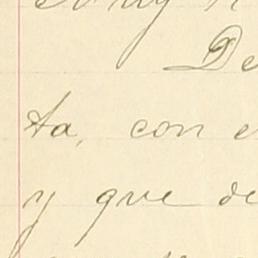 De
ta, con e
y que de